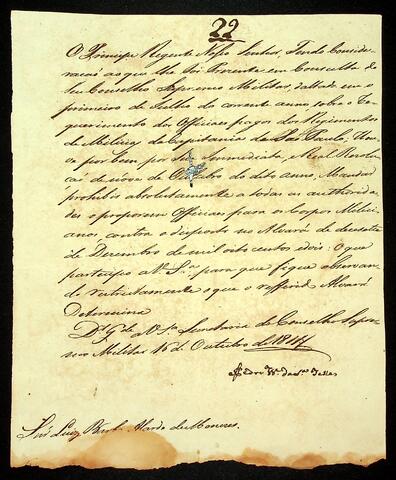 22
O Principe Regente Nosso Senhor, Tendo Conside-
racaõ ao que lhe foi Prezente em Consulta do
seu Conselho Supremo Militar, dattada em o
primeiro de Julho do corrente anno sobre o Re-
querimento dos Officiaes pagos dos Regimentos
de Milicias da Capitania de Saõ Paulo; Hou-
ve por bem por Sua Immediata, e Real Resolu-
caõ de nove de Outubro do dito anno, Mandar
prohibir absolutamente a todas as authorida-
des o proporem Officiaes para os Corpos Milici-
anos contra o disposto no Alvará de dezesette
de Dezembro de mil oito centos e dois: O que
participo a V. S.ª para que fique observan-
do restrictamente o que o refferido Alvará
Determina
D.s G.e a V. S.ª Secretaria do Conselho Supre-
mo Militar 15 de Outubro de 1814
Telles
Luiz de Menezes.